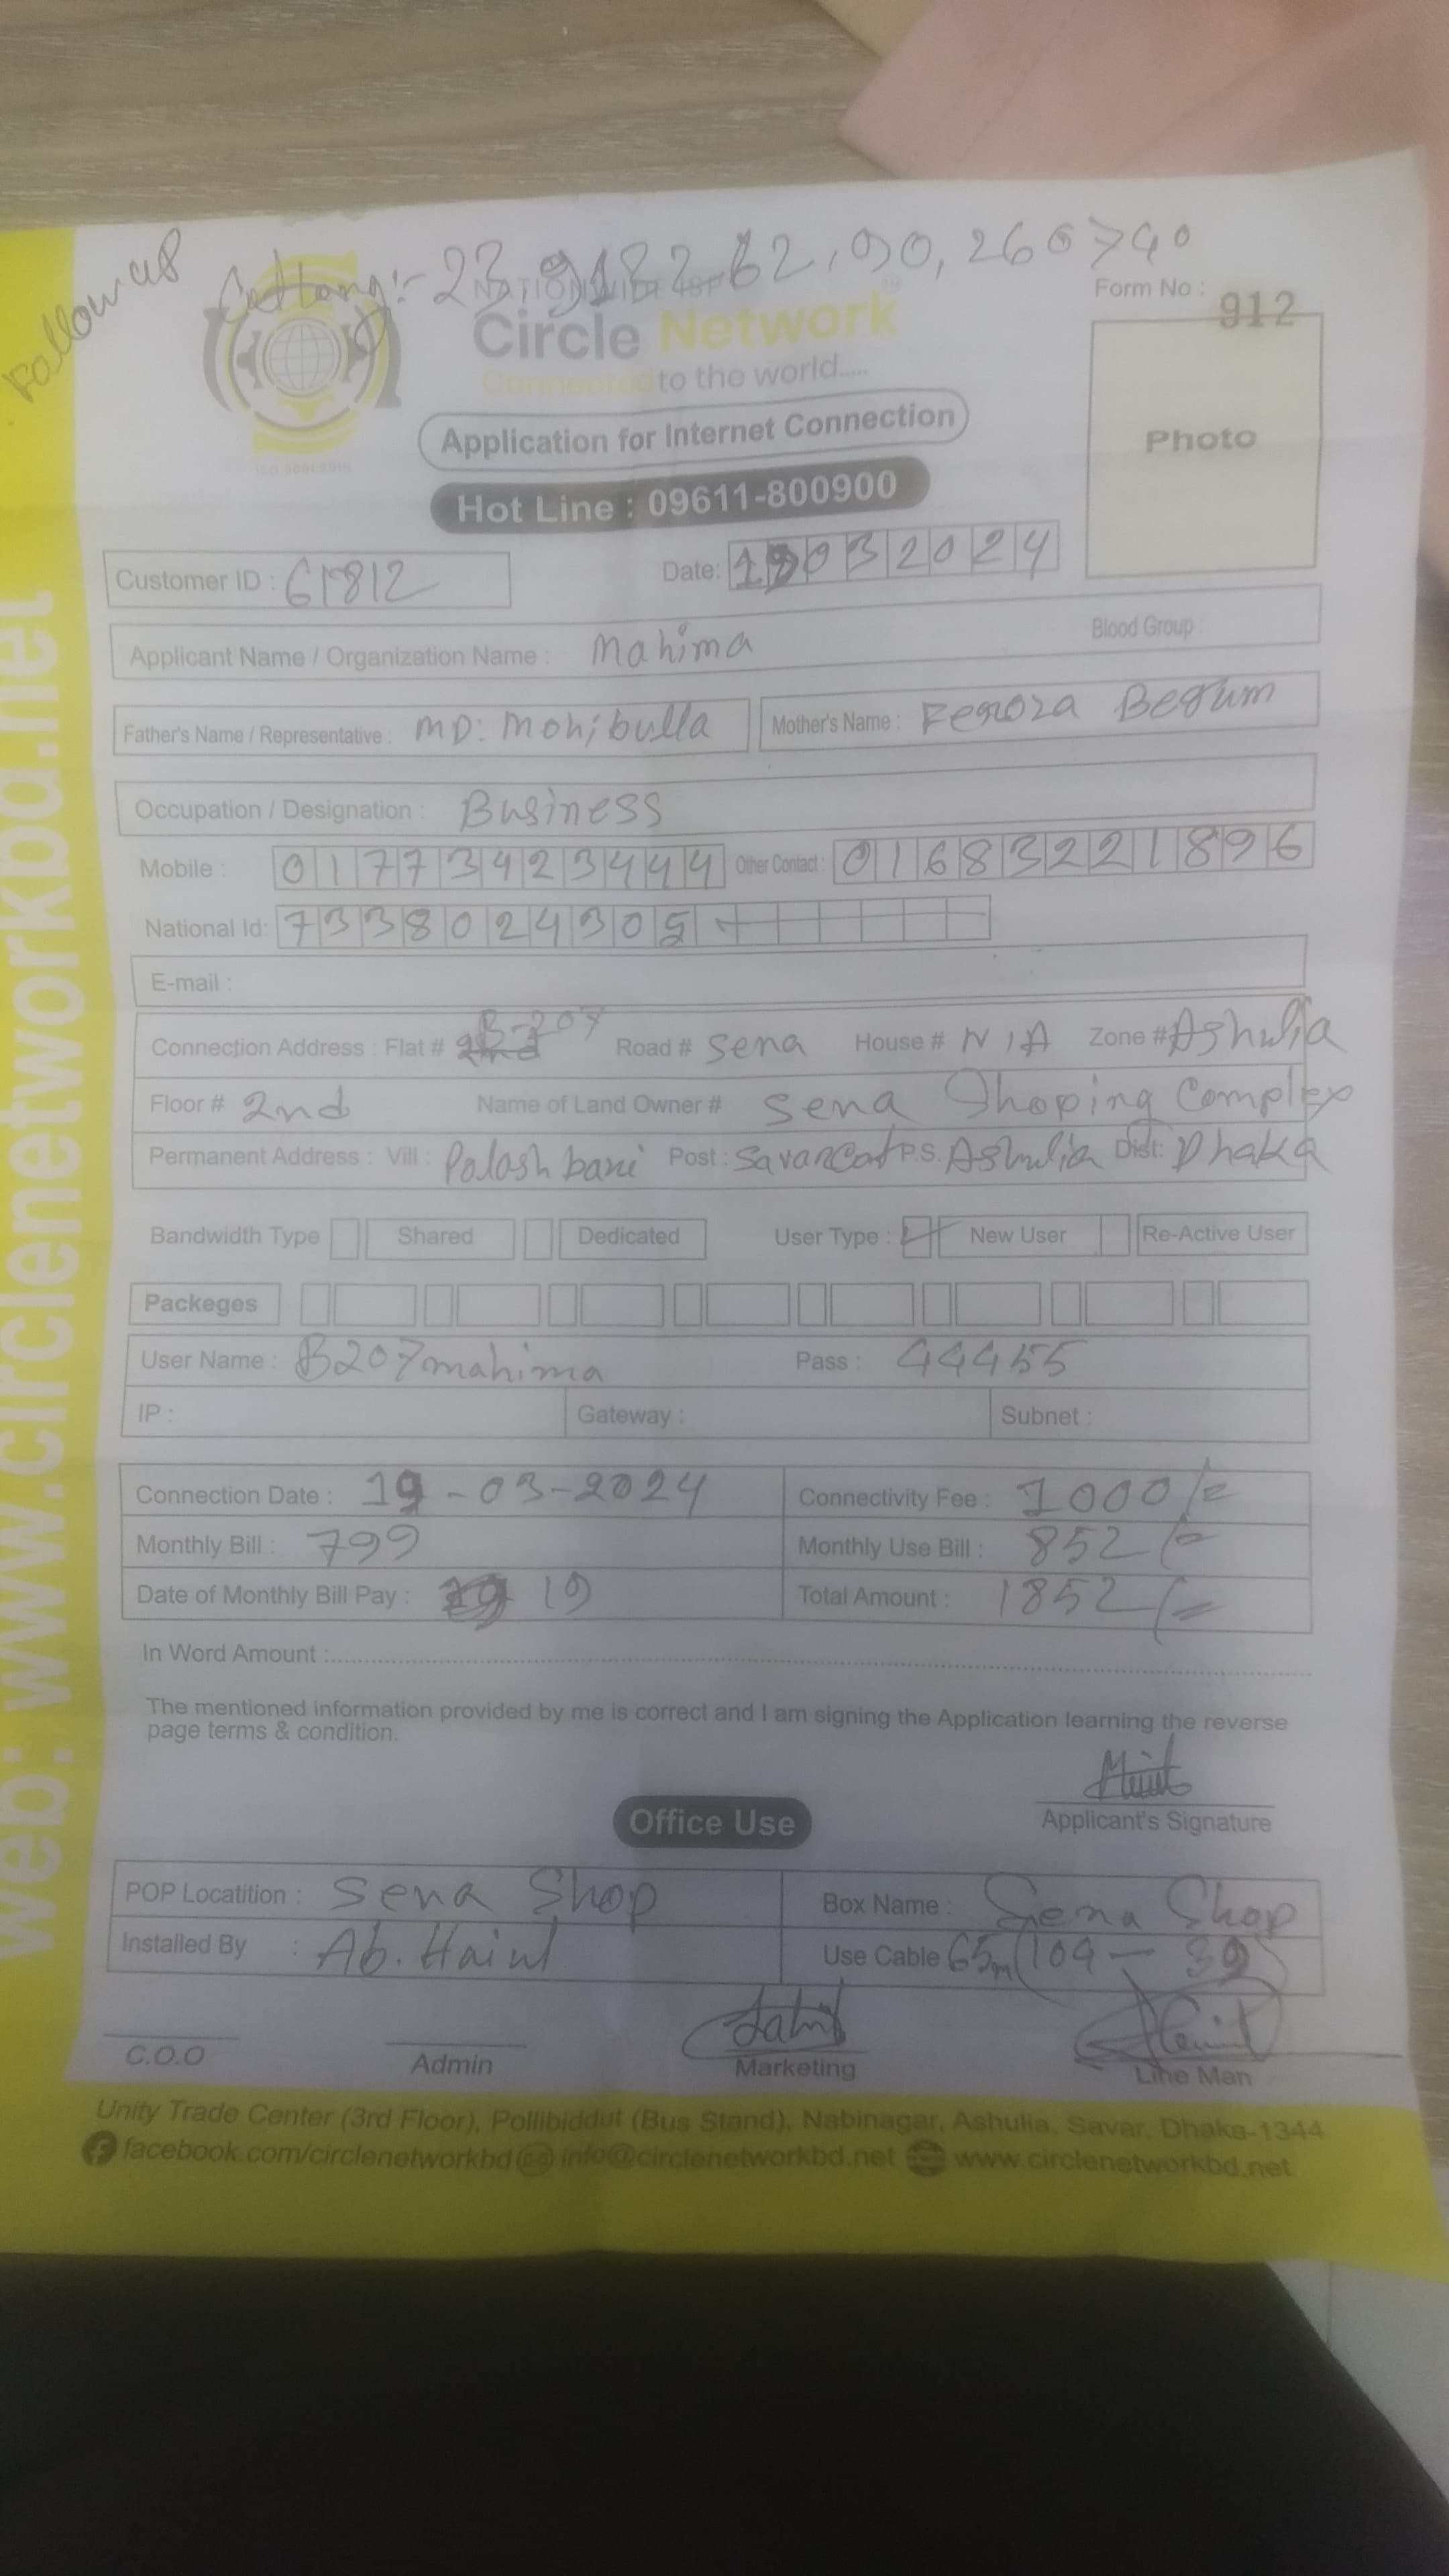 Follow up
23.918262,90,2607490
NATIONWIDE ISP
Form No : 912
Circle Network
Connected to the world.....
Photo
Application for Internet Connection
Hot Line : 09611-800900
Customer ID : 61812 Date: 19032024
Applicant Name / Organization Name : Mahima Blood Group :
Father's Name / Representative : MD: Mohibulla Mother's Name : Feroza Begum
Occupation / Designation : Business
Mobile : 01773423444 Other Contact : 01683221896
National Id: 7338024305
E-mail :
Connection Address : Flat # B-207 Road # Sena House # N/A Zone # Ashulia
Floor # 2nd Name of Land Owner # Sena Shoping Complex
Permanent Address : Vill : Polashbari Post : SavarCant P.S. Ashulia Dist: Dhaka
Bandwidth Type Shared Dedicated User Type : New User Re-Active User
Packeges
User Name : B207mahima Pass : 444455
IP : Gateway : Subnet :
Connection Date : 19-03-2024 Connectivity Fee : 1000/=
Monthly Bill : 799 Monthly Use Bill : 852/=
Date of Monthly Bill Pay : 19 Total Amount : 1852/=
In Word Amount :
The mentioned information provided by me is correct and I am signing the Application learning the reverse
page terms & condition.
Applicant's Signature
Office Use
POP Locatition : Sena Shop Box Name : Sena Shop
Installed By : Ab. Use Cable 65m(104 - 39)
C.O.O Admin Marketing Line Man
Unity Trade Center (3rd Floor), Pollibiddut (Bus Stand), Nabinagar, Ashulia, Savar, Dhaka-1344
facebook.com/circlenetworkbd info@circlenetworkbd.net www.circlenetworkbd.net
web: www.circlenetworkbd.net